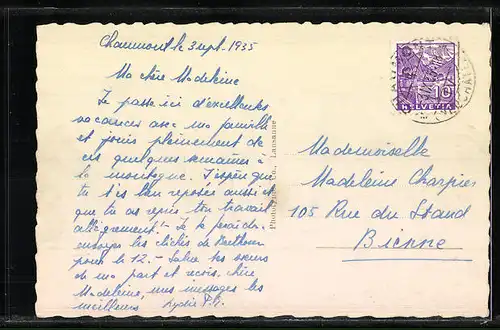 Chaumont le 3 sept. 1935
Ma chère Madeleine
Je passe ici d'excellentes
vacances avec ma famille
et jouis pleinement de
ces quelques semaines à
la montagne. J'espère que
tu t'es bien reposée aussi et
que tu as repris ton travail
allégrement! - Je te
les clichés de Berthou
pour le 12. - Salue tes sœurs
de ma part et reçois, chère
Madeleine, mes messages les
meilleurs Lydie
Photographie Co., Lausanne
10
HELVETIA
Mademoiselle
Madeleine Charpier
105 Rue du Stand
Bienne